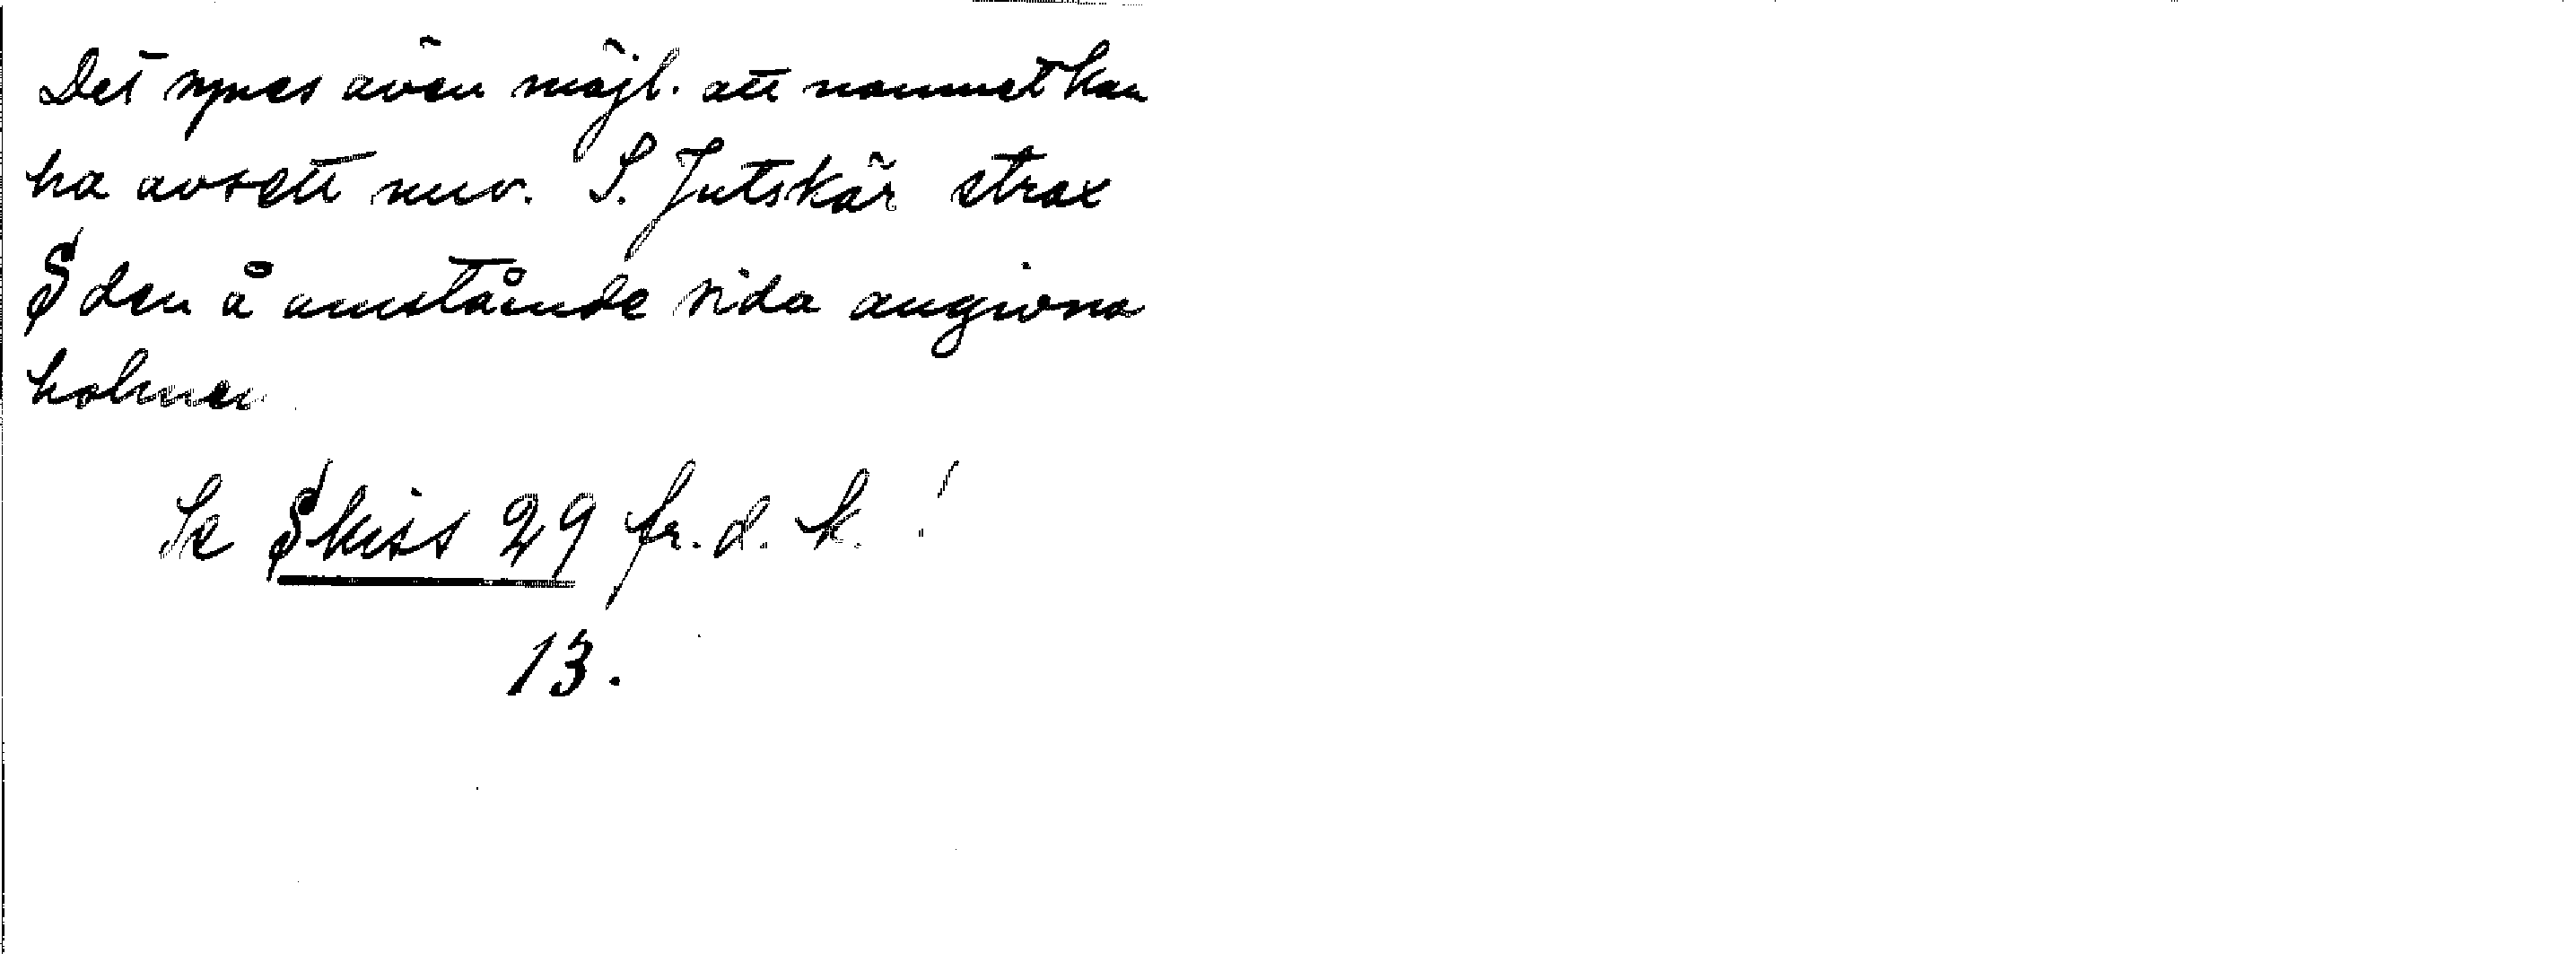 Det synes även möjl. att namnet kan
ha avsett nuv. S. Jutskär strax
S den å omstående sida angivna
holmen
Se Skiss 29 fr. d. k.!
13.